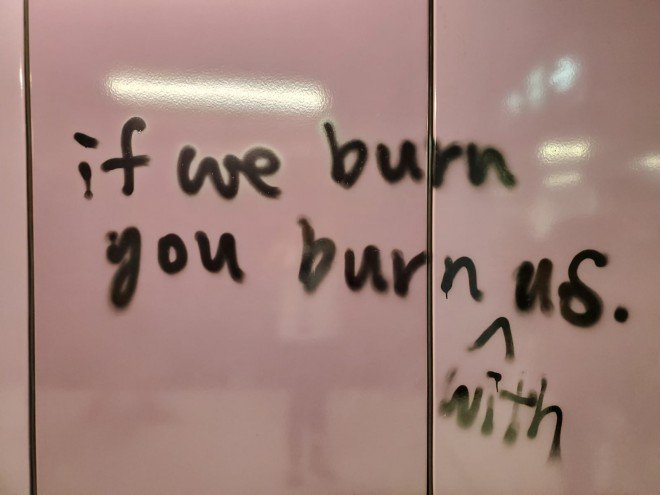 if we burn
you burn us.
^
with